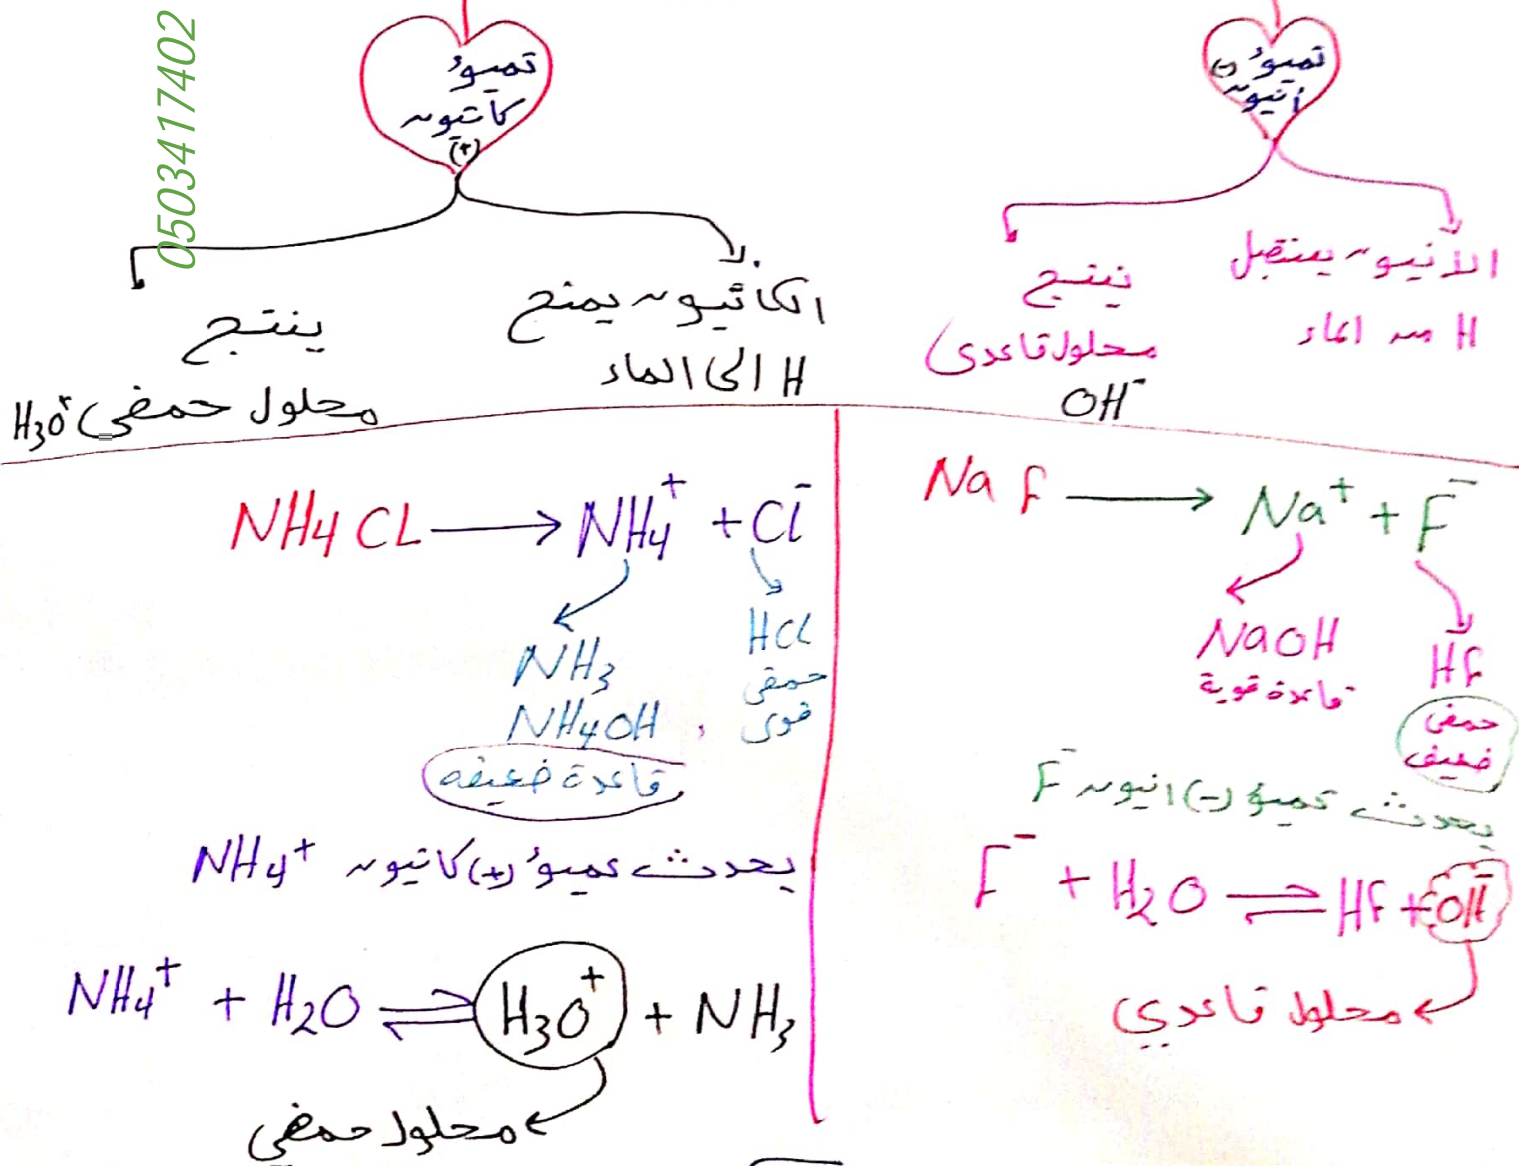 تميؤ (-)
أنيون
الأنيون يستقبل
H من الماء
ينتج
محلول قاعدي
OH⁻
NaF → Na⁺ + F⁻
NaOH
قاعدة قوية
HF
حمض
ضعيف
يحدث تميؤ (-) انيون F⁻
F⁻ + H₂O ⇌ HF + OH⁻
محلول قاعدي
0503417402
تميؤ
كاتيون
(+)
الكاتيون يمنح
H الى الماء
ينتج
محلول حمضي H₃O⁺
NH₄CL → NH₄⁺ + Cl⁻
NH₃
NH₄OH
قاعدة ضعيفه
HCl
حمض
قوى
يحدث تميؤ (+) كاتيون NH₄⁺
NH₄⁺ + H₂O ⇌ H₃O⁺ + NH₃
محلول حمضي